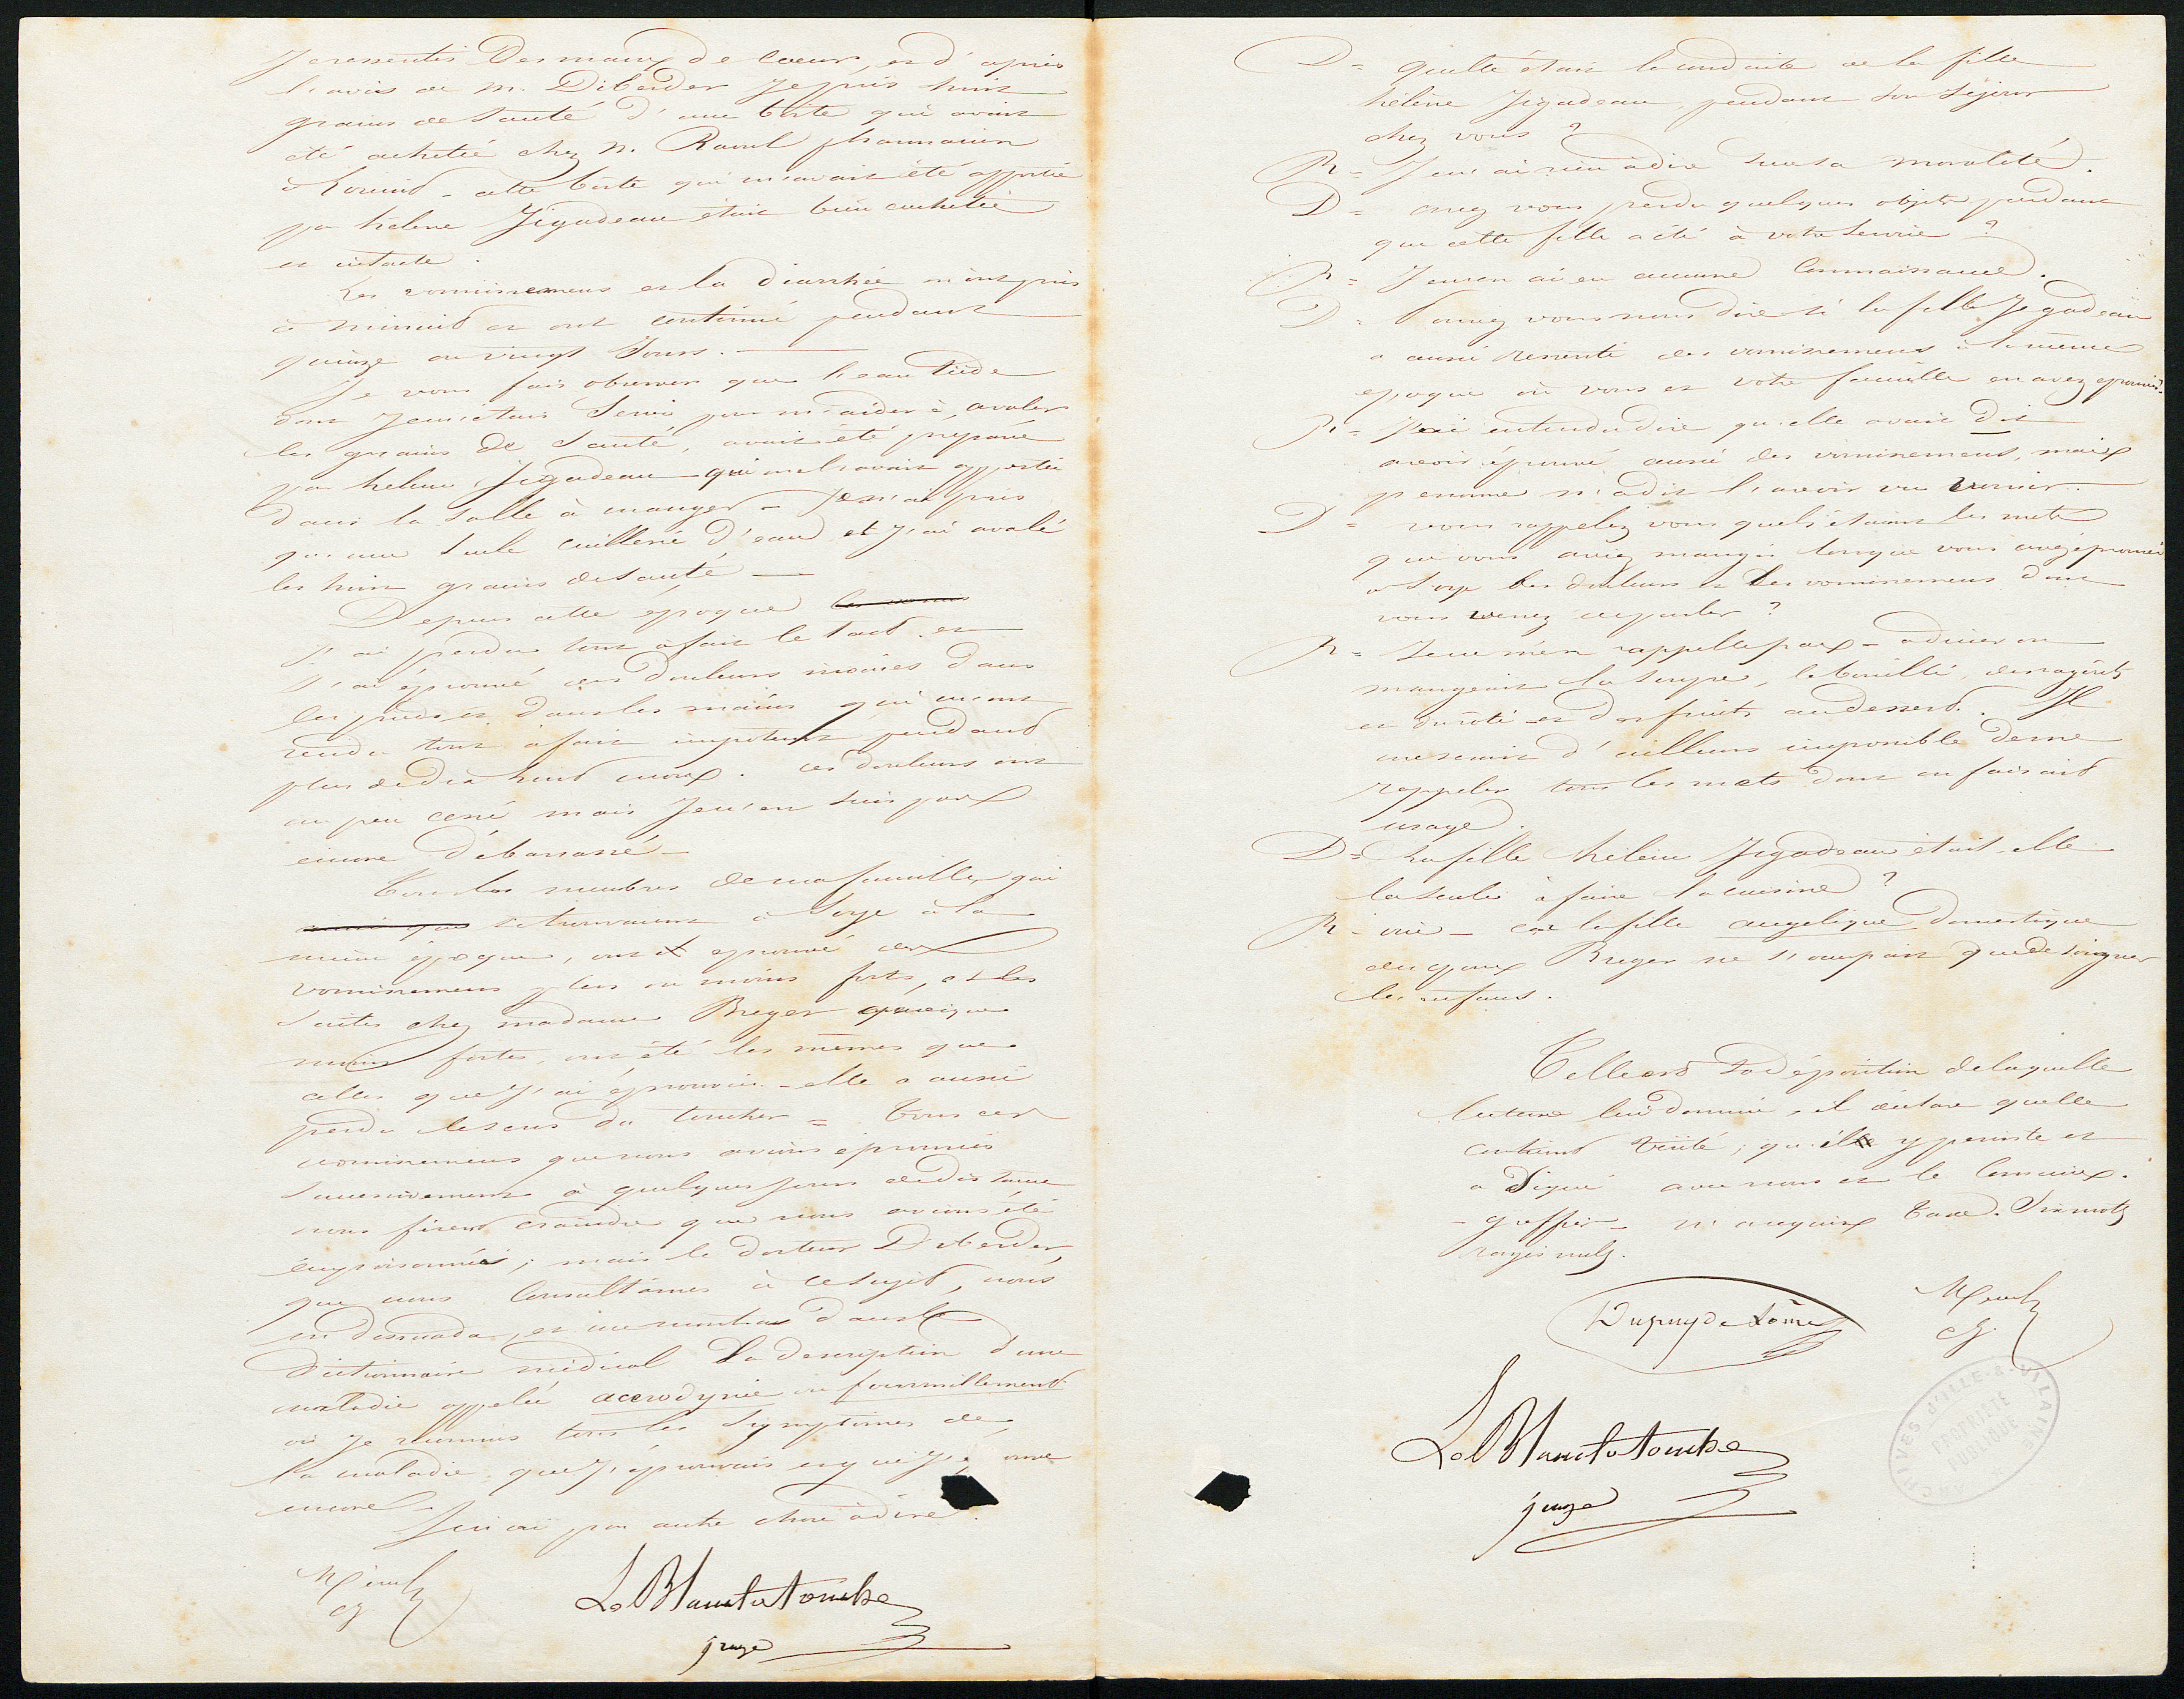 Je ressentis des maux de coeur, et d'après
l'avis de M. Diberder je pris huit
grains de santé d'une boîte qui avait
été achetée chez M. Raoul pharmacien
à Lorient - cette boîte qui m'avait été apportée
par hélène Jégadeau était bien cachetée
et intacte.
Les vomissemens et la diarrhée m'ont pris
à minuit et ont continué pendant
quinze ou vingt jours. -
Je vous fais observer que l'eau tiède
dont je m'étais servi pour m'aider à avaler
les grains de santé, avait été préparée
par hélène Jégadeau qui me l'avait apportée
dans la salle à manger - je n'ai pris
qu'une seule cuillerée d'eau et j'ai avalé
les huit grains de santé -
Depuis cette époque
J'ai perdu tout à fait le tact et
j'ai éprouvé des douleurs inouies dans
les pieds et dans les mains qui m'ont
rendu tout à fait impotent pendant
plus de dix huit mois. ces douleurs ont
un peu cessé mais je n'en suis pas
encore débarrassé -
Tous les membres de ma famille qui
se trouvaient à Soye à la
même époque, ont éprouvé des
vomissemens plus ou moins forts, et les
suites chez madame Breger quoique
moins fortes, ont été les mêmes que
celles que j'ai éprouvées - elle a aussi
perdu le sens du toucher = Tous ces
vomissemens que nous avions éprouvés
successivement à quelques jours de distance
nous firent craindre que nous avions été
empoisonnés; mais le docteur Diberder,
que nous consultâmes à ce sujet, nous
en dissuada, et me montra dans le
dictionnaire médical la description d'une
maladie appelée accrodynie ou fourmillement
où je reconnus tous les symptômes de
la maladie que j'éprouvais et que j'éprouve
encore -
Je n'ai pas autre chose à dire.
LeBlanctatombe
juge
D = Quelle était la conduite de la fille
hélène Jégadeau, pendant son séjour
chez vous ?
R = Je n'ai rien à dire sur sa moralité.
D = avez vous perdu quelques objets pendant
que cette fille a été à votre service ?
R = Je n'en ai eu aucune connaissance.
D = Pouvez vous nous dire si la fille Jégadeau
a aussi ressenti des vomissemens à la même
époque où vous et votre famille en avez éprouvé?
R = J'ai entendu dire qu'elle avait dit
avoir éprouvé aussi des vomissemens, mais
personne n'a dit l'avoir vu vomir.
D = vous rappelez vous quels étaient les mets
que vous aviez mangés lorsque vous avez éprouvé
à Soye les douleurs et les vomissemens dont
vous venez de parler ?
R = Je ne m'en rappelle pas - à diner on
mangeait la soupe, le bouilli, des ragoûts
et du rôti et des fruits au dessert. Il
me serait d'ailleurs impossible de me
rappeler tous les mets dont on faisait
usage.
D = La fille hélène Jégadeau était-elle
la seule à faire la cuisine ?
R - oui - car la fille angelique domestique
des époux Breger ne s'occupait que de soigner
les enfans.
Telle est sa déposition de laquelle
lecture lui donnée, il déclare quelle
contient vérité, qu'il y persiste et
a signé avec nous et le commis
- greffier - n'a requis taxe. Six mots
rayés nuls.
Dupuy de Lôme
LeBlanctatombe
juge
ARCHIVES D'ILLE-&-VILAINE
PROPRIÉTÉ
PUBLIQUE